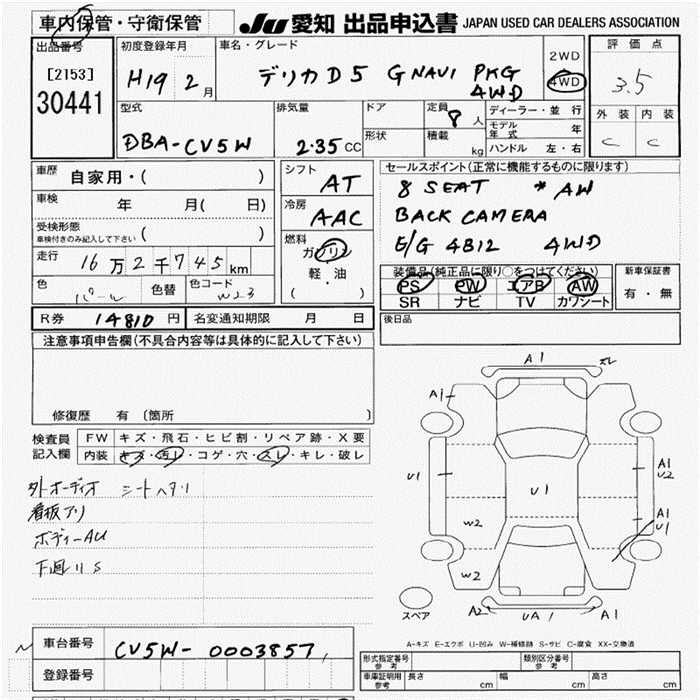 車内保管・守衛保管
JU 愛知 出品申込書 JAPAN USED CAR DEALERS ASSOCIATION
出品番号
[2153]
30441
初度登録年月
H19 2月
車名・グレード
デリカD5 G NAVI PKG
4WD
2WD
4WD
評価点
3.5
外装 内装
C C
型式
DBA-CV5W
排気量
2.35CC
ドア
形状
定員
8人
積載
kg
ディーラー・並行
モデル年式 年
ハンドル 左・右
車歴
自家用・( )
車検
年 月( 日)
受検形態
車検付きのみ記入して下さい ( )
走行
16万2千745km
色
パール
色替
色コード
W23
シフト
AT
冷房
AAC
燃料
ガソリン
軽・油
( )
セールスポイント(正常に機能するものに限ります)
8 SEAT * AW
BACK CAMERA
E/G 4B12 4WD
装備品(純正品に限り○をつけてください)
PS PW エアB AW
SR ナビ TV カワシート
新車保証書
有・無
R券 14810円
名変通知期限 月 日
後日品
注意事項申告欄(不具合内容等は具体的に記入して下さい)
修復歴 有 〔箇所 〕
検査員
記入欄
FW キズ・飛石・ヒビ割・リペア跡・X要
内装 キズ・汚レ・コゲ・穴・スレ・キレ・破レ
外オーディオ シートヘタリ
看板アリ
ボディーAU
下廻りS
A1
A1
U1
U1
A1
U2
A1
U1
W2
W2
A2
UA1
A1
スペア
A-キズ E-エクボ U-凹み W-補修跡 S-サビ C-腐食 XX-交換済
車台番号
CV5W-0003857
登録番号
形式指定番号
参考
類別区分番号
参考
車庫証明用
参考
長さ cm
幅 cm
高さ cm